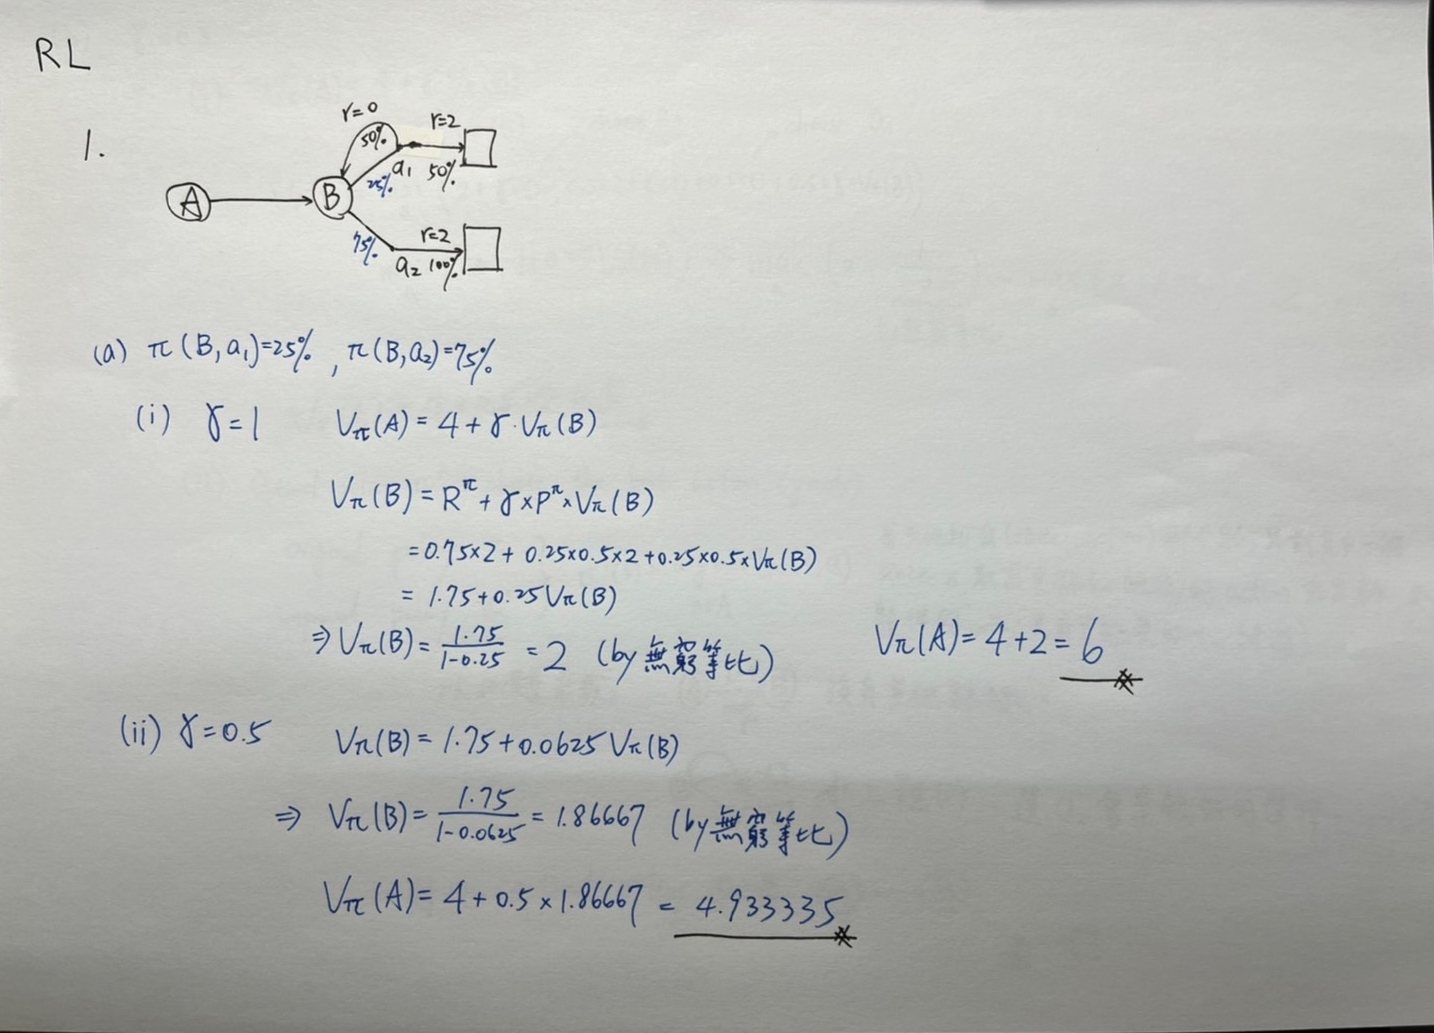 RL
1.
r=0
50%
r=2
25%
a₁ 50%
A
B
75%
r=2
a₂ 100%
(a) π(B,a₁)=25% , π(B,a₂)=75%
(i) γ=1 Vπ(A) = 4 + γ·Vπ(B)
Vπ(B) = R^π + γ×P^π×Vπ(B)
=0.75×2 + 0.25×0.5×2+0.25×0.5×Vπ(B)
= 1.75+0.25Vπ(B)
⇒ Vπ(B) = 1.75/(1-0.25) = 2 (by 無窮等比) Vπ(A) = 4+2 = 6
(ii) γ=0.5 Vπ(B) = 1.75+0.0625Vπ(B)
⇒ Vπ(B) = 1.75/(1-0.0625) = 1.86667 (by 無窮等比)
Vπ(A) = 4 + 0.5×1.86667 = 4.933335